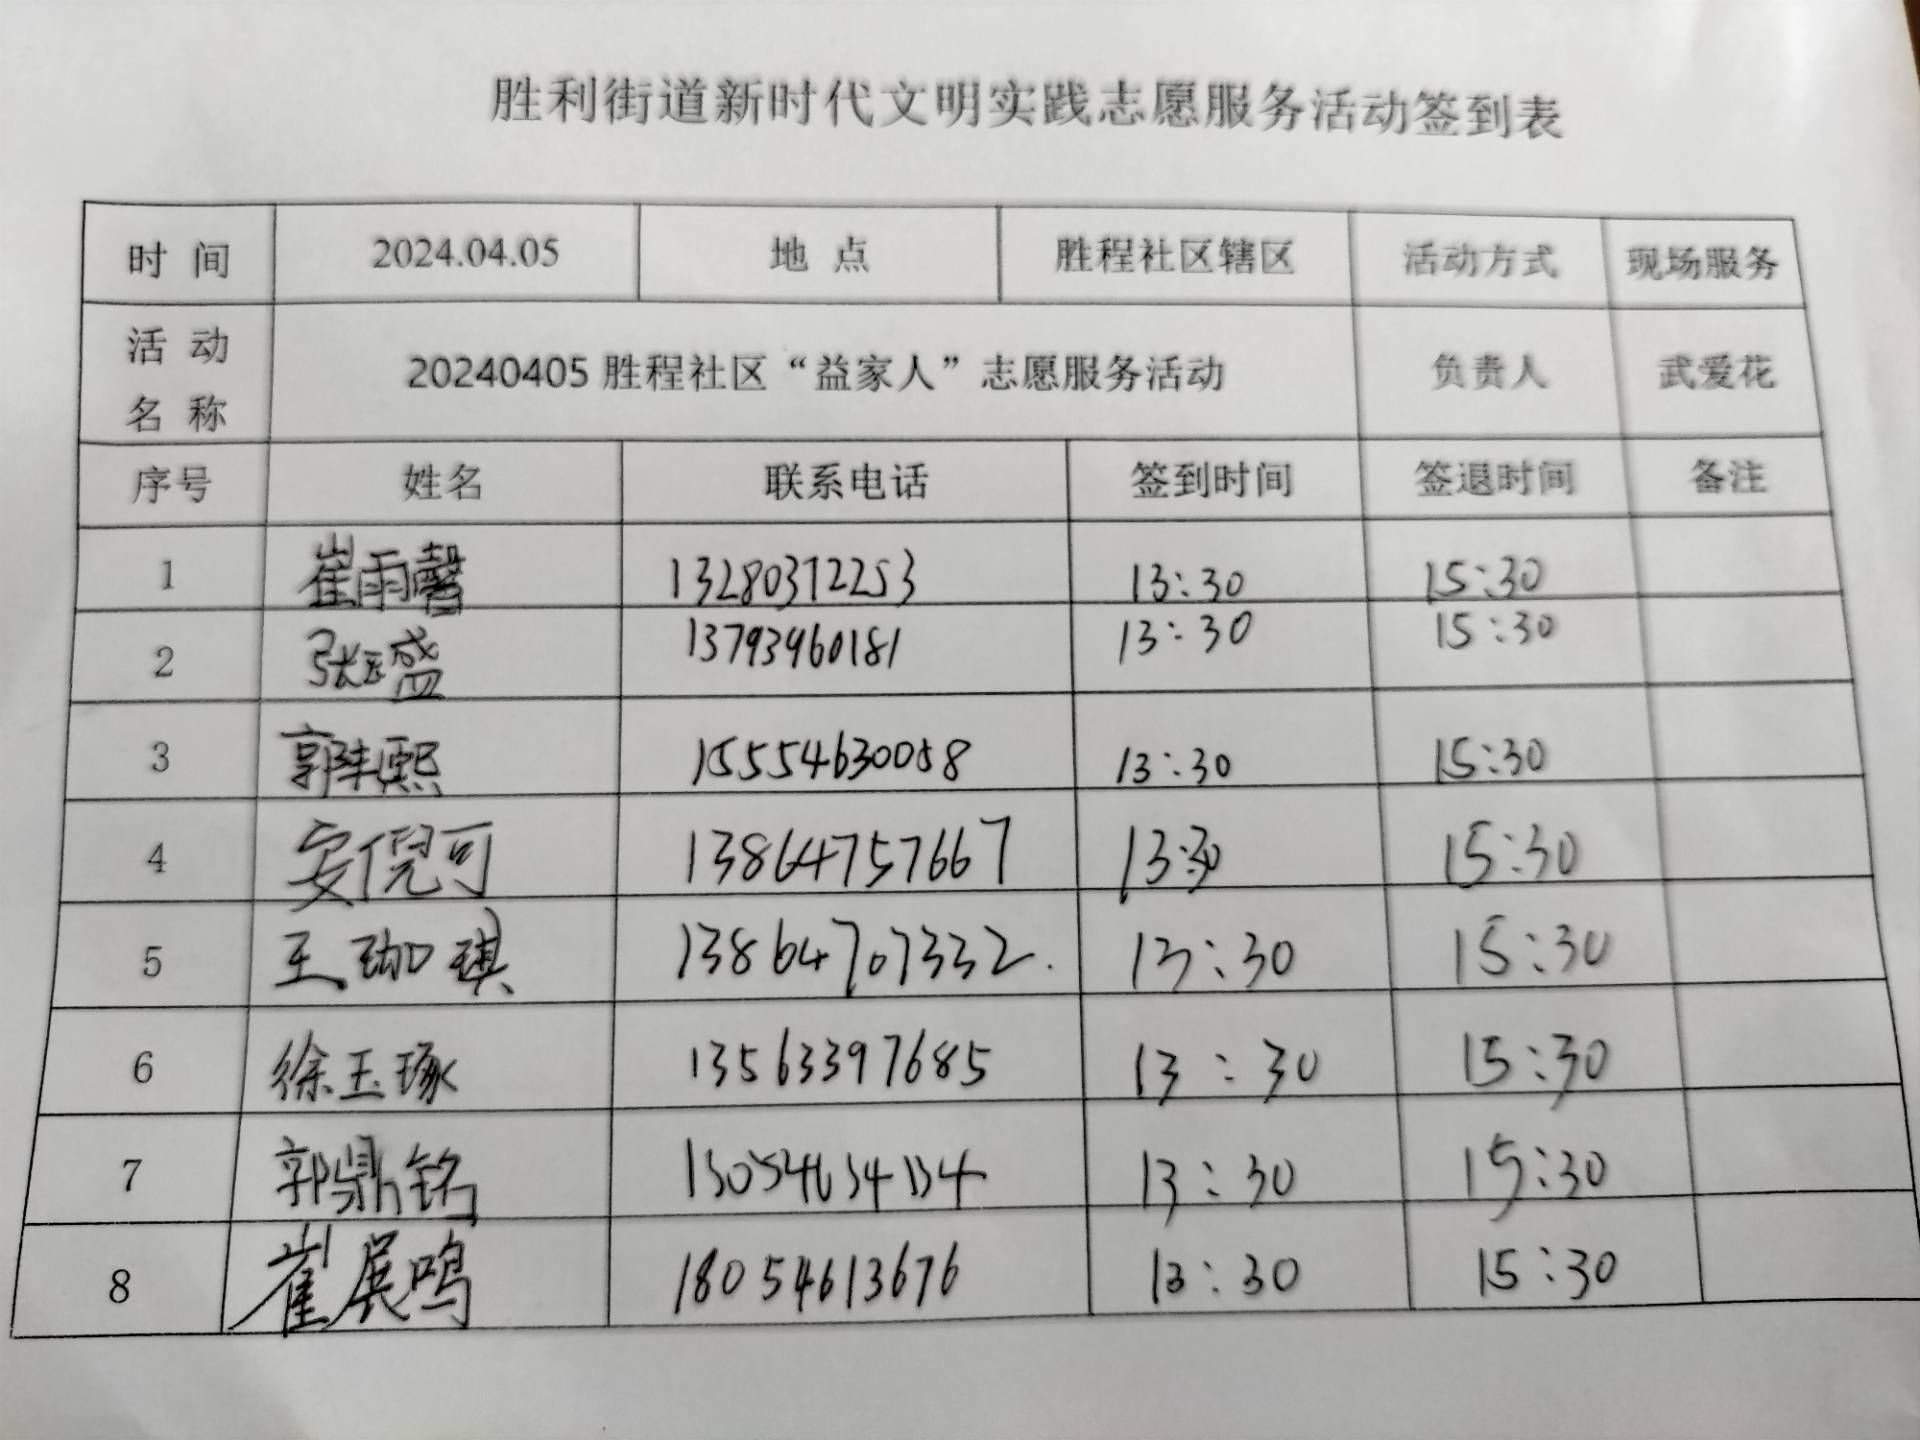 胜利街道新时代文明实践志愿服务活动签到表
时 间 2024.04.05 地 点 胜程社区辖区 活动方式 现场服务
活 动
名 称 20240405 胜程社区“益家人”志愿服务活动 负责人 武爱花
序号 姓名 联系电话 签到时间 签退时间 备注
1 崔雨馨 13280372253 13:30 15:30
2 张盛 13793960181 13:30 15:30
3 郭熙 15554630058 13:30 15:30
4 安倪可 13864757667 13:30 15:30
5 王珈琪 13864707332. 13:30 15:30
6 徐玉琢 13563397685 13:30 15:30
7 郭鼎铭 13:30 15:30
8 崔展鸣 18054613676 13:30 15:30